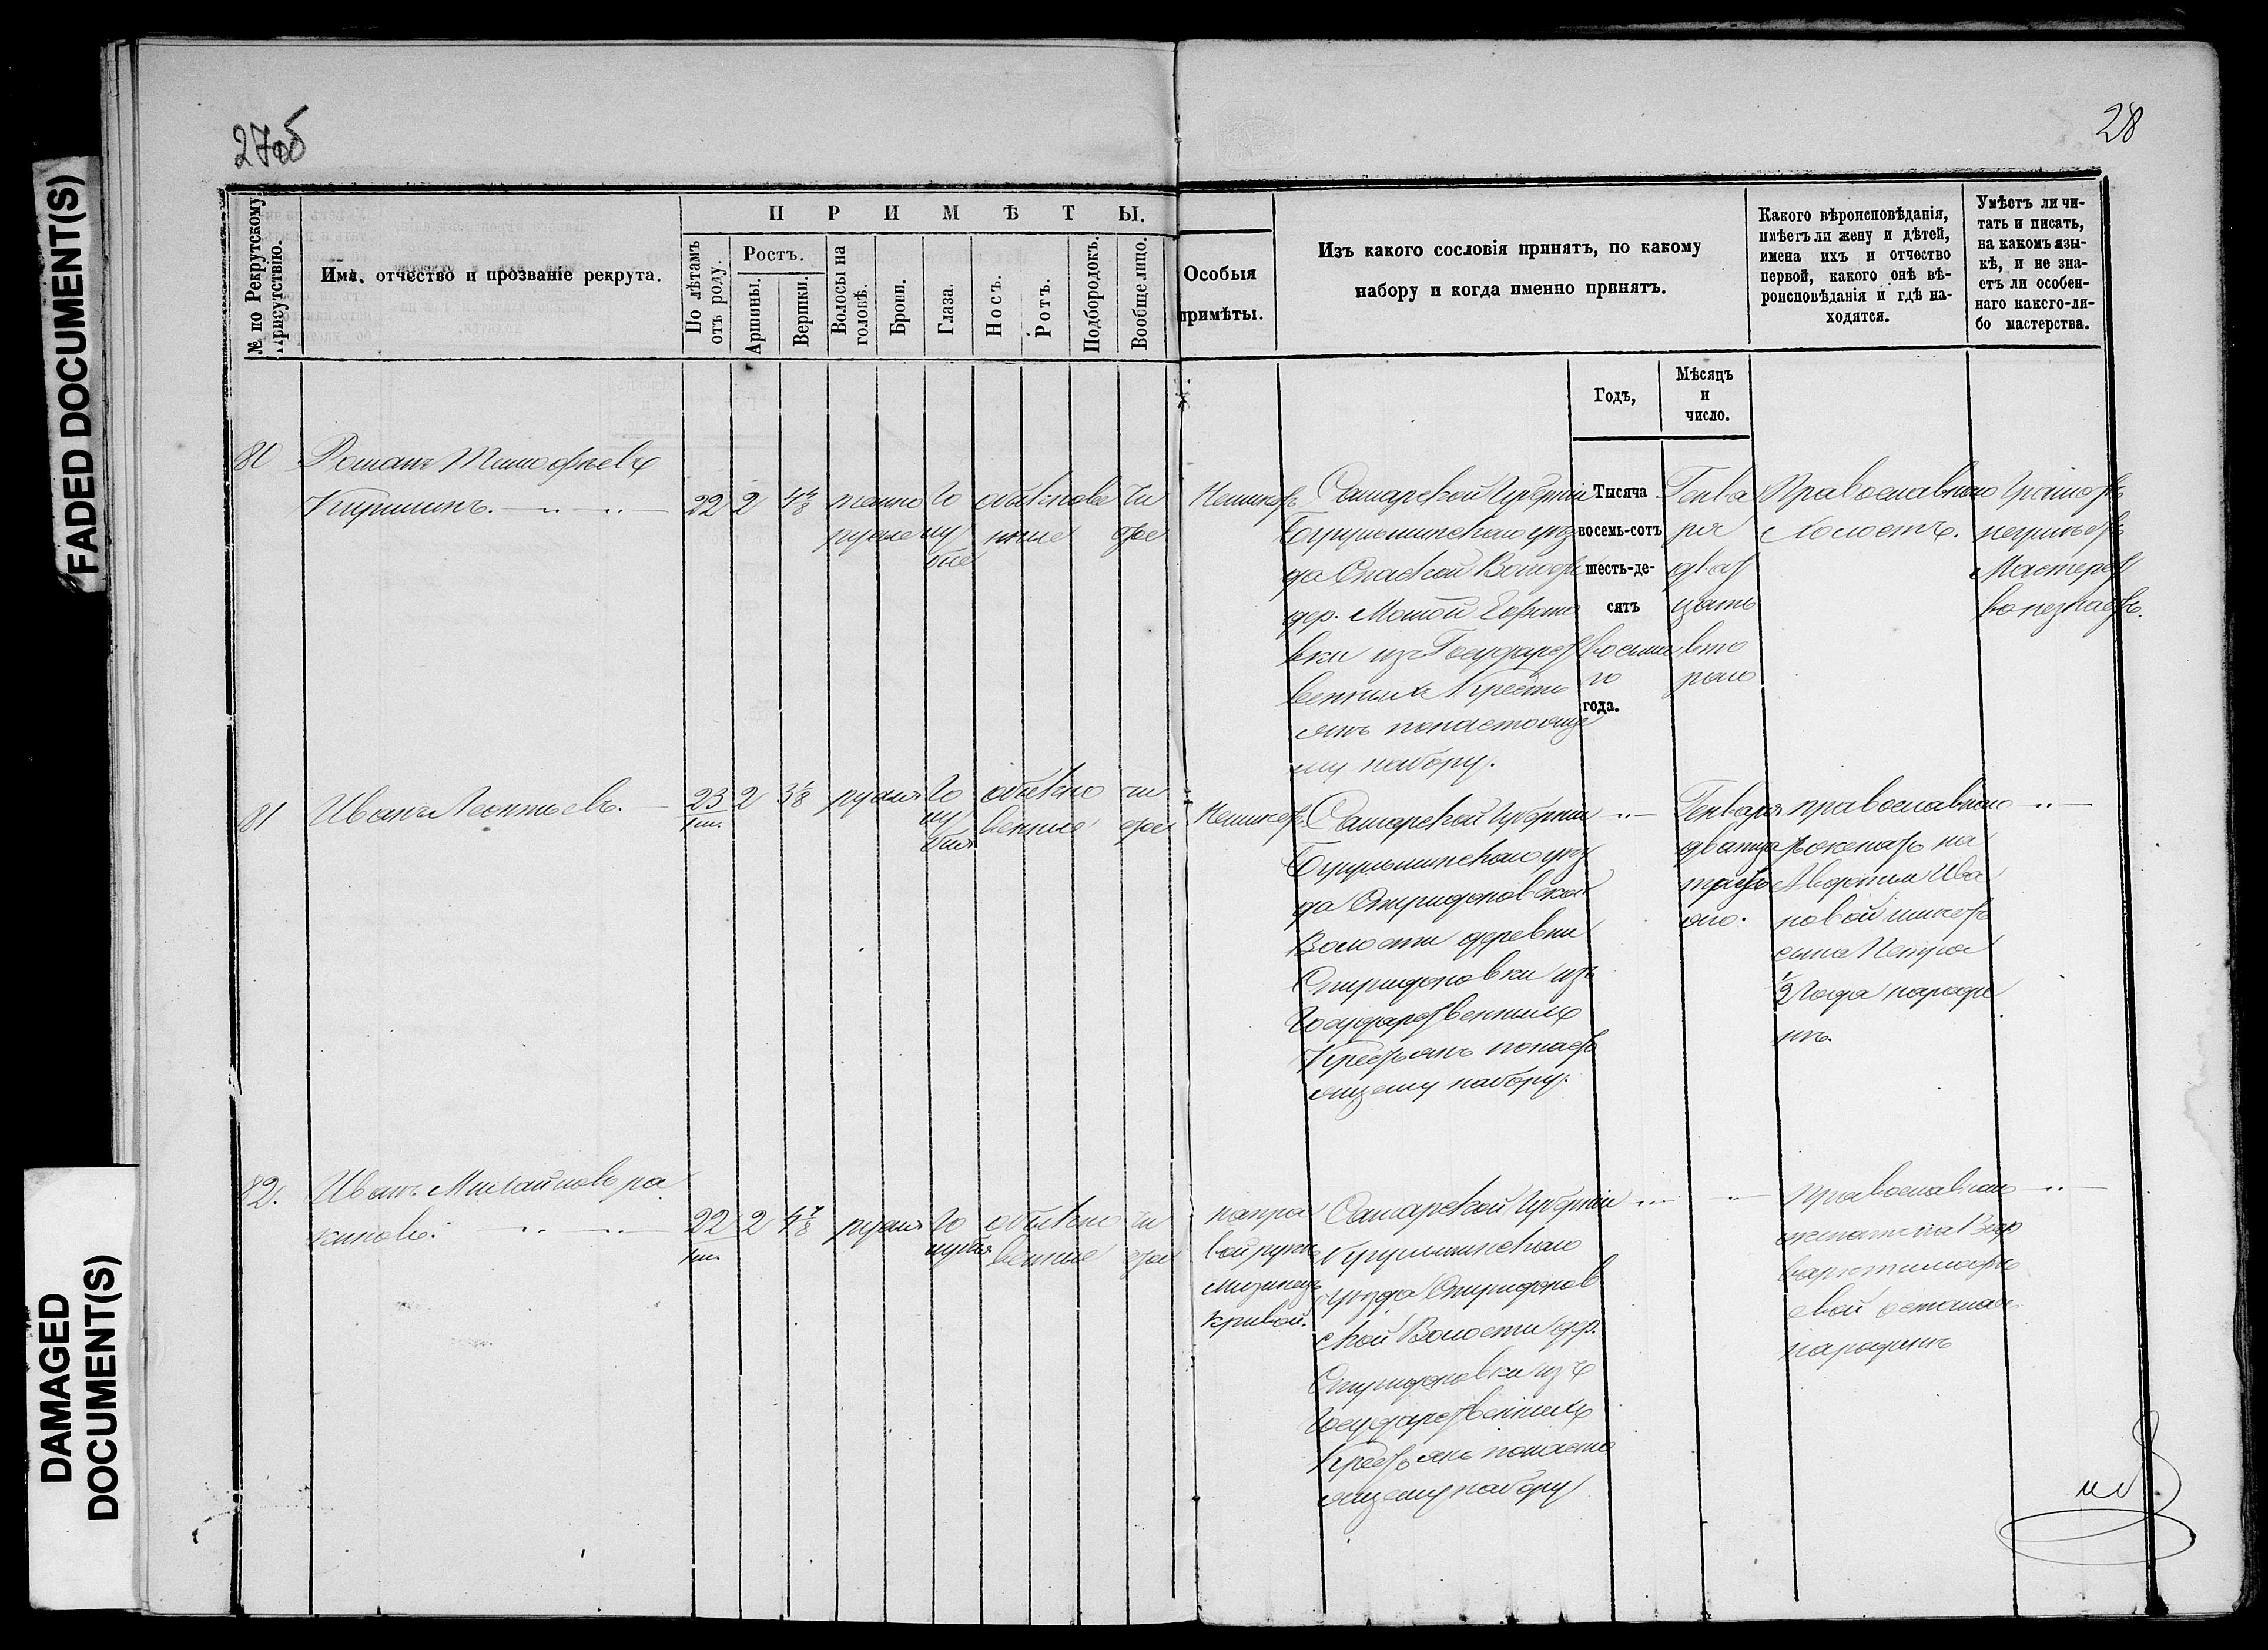 FADED DOCUMENT(S)
DAMAGED
DOCUMENT(S)
27об
28
№ по Рекрутскому
Присутствію.
Имя, отчество и прозваніе рекрута.
ПРИМѢТЫ.
По лѣтамъ
отъ роду.
Ростъ.
Аршины.
Вершки.
Волосы на
головѣ.
Брови.
Глаза.
Носъ.
Ротъ.
Подбородокъ.
Вообще лицо.
Особыя
примѣты.
Изъ какого сословія принятъ, по какому
набору и когда именно принятъ.
Годъ,
Мѣсяцъ
и
число.
Какого вѣроисповѣданія,
имѣетъ ли жену и дѣтей,
имена ихъ и отчество
первой, какого онѣ вѣ-
роисповѣданія и гдѣ на-
ходятся.
Умѣетъ ли чи-
тать и писать,
на какомъ язы-
кѣ, и не зна-
етъ ли особен-
наго какого-ли-
бо мастерства.
80
Романъ Тимофѣевъ
22 2 4 4/8
темно
русые
го
лу
бые
обыкнове
нные
чи
стое
Неимѣетъ
Самарской Губерніи
Бугульминскаго уѣз
да Спаской Волости
дер.
вки изъ Государст
венныхъ Крестъ
янъ понастояще
му набору.
Тысяча
восемь-сотъ
шесть-де-
сятъ
восьма
го
года.
Генва
ря
двад
цать
вто
раго
Православнаго
Холостъ.
Грамотѣ
неумѣетъ
Мастерст
ва незнаетъ.
81
Иванъ Леонтьевъ.
23 2 3 1/8
русыя
го
лу
быя
обыкно
венные
чи
стое
Неимѣетъ.
Самарской Губерніи
Бугульминскаго уѣз
да Спиридоновской
Волости деревни
Спиридоновки изъ
Государственныхъ
Крестьянъ понаст
оящему набору.
Генваря
православнаго
женатъ на
Ива
новой имѣетъ
сына Петра
1/2 года народи
нѣ.
82.
Иванъ Михайловъ ра
киновъ.
22 2 4 7/8
русыя
го
лубыя
обыкно
венные
чи
стое
направой
рукѣ
мизинецъ
кривой.
Самарской Губерніи
Бугульминскаго
уѣзда Спиридонов
ской Волости дер.
Спиридоновки изъ
Государственныхъ
Крестьянъ понасто
ящему набору
православнаго
женатъ на
народинѣ